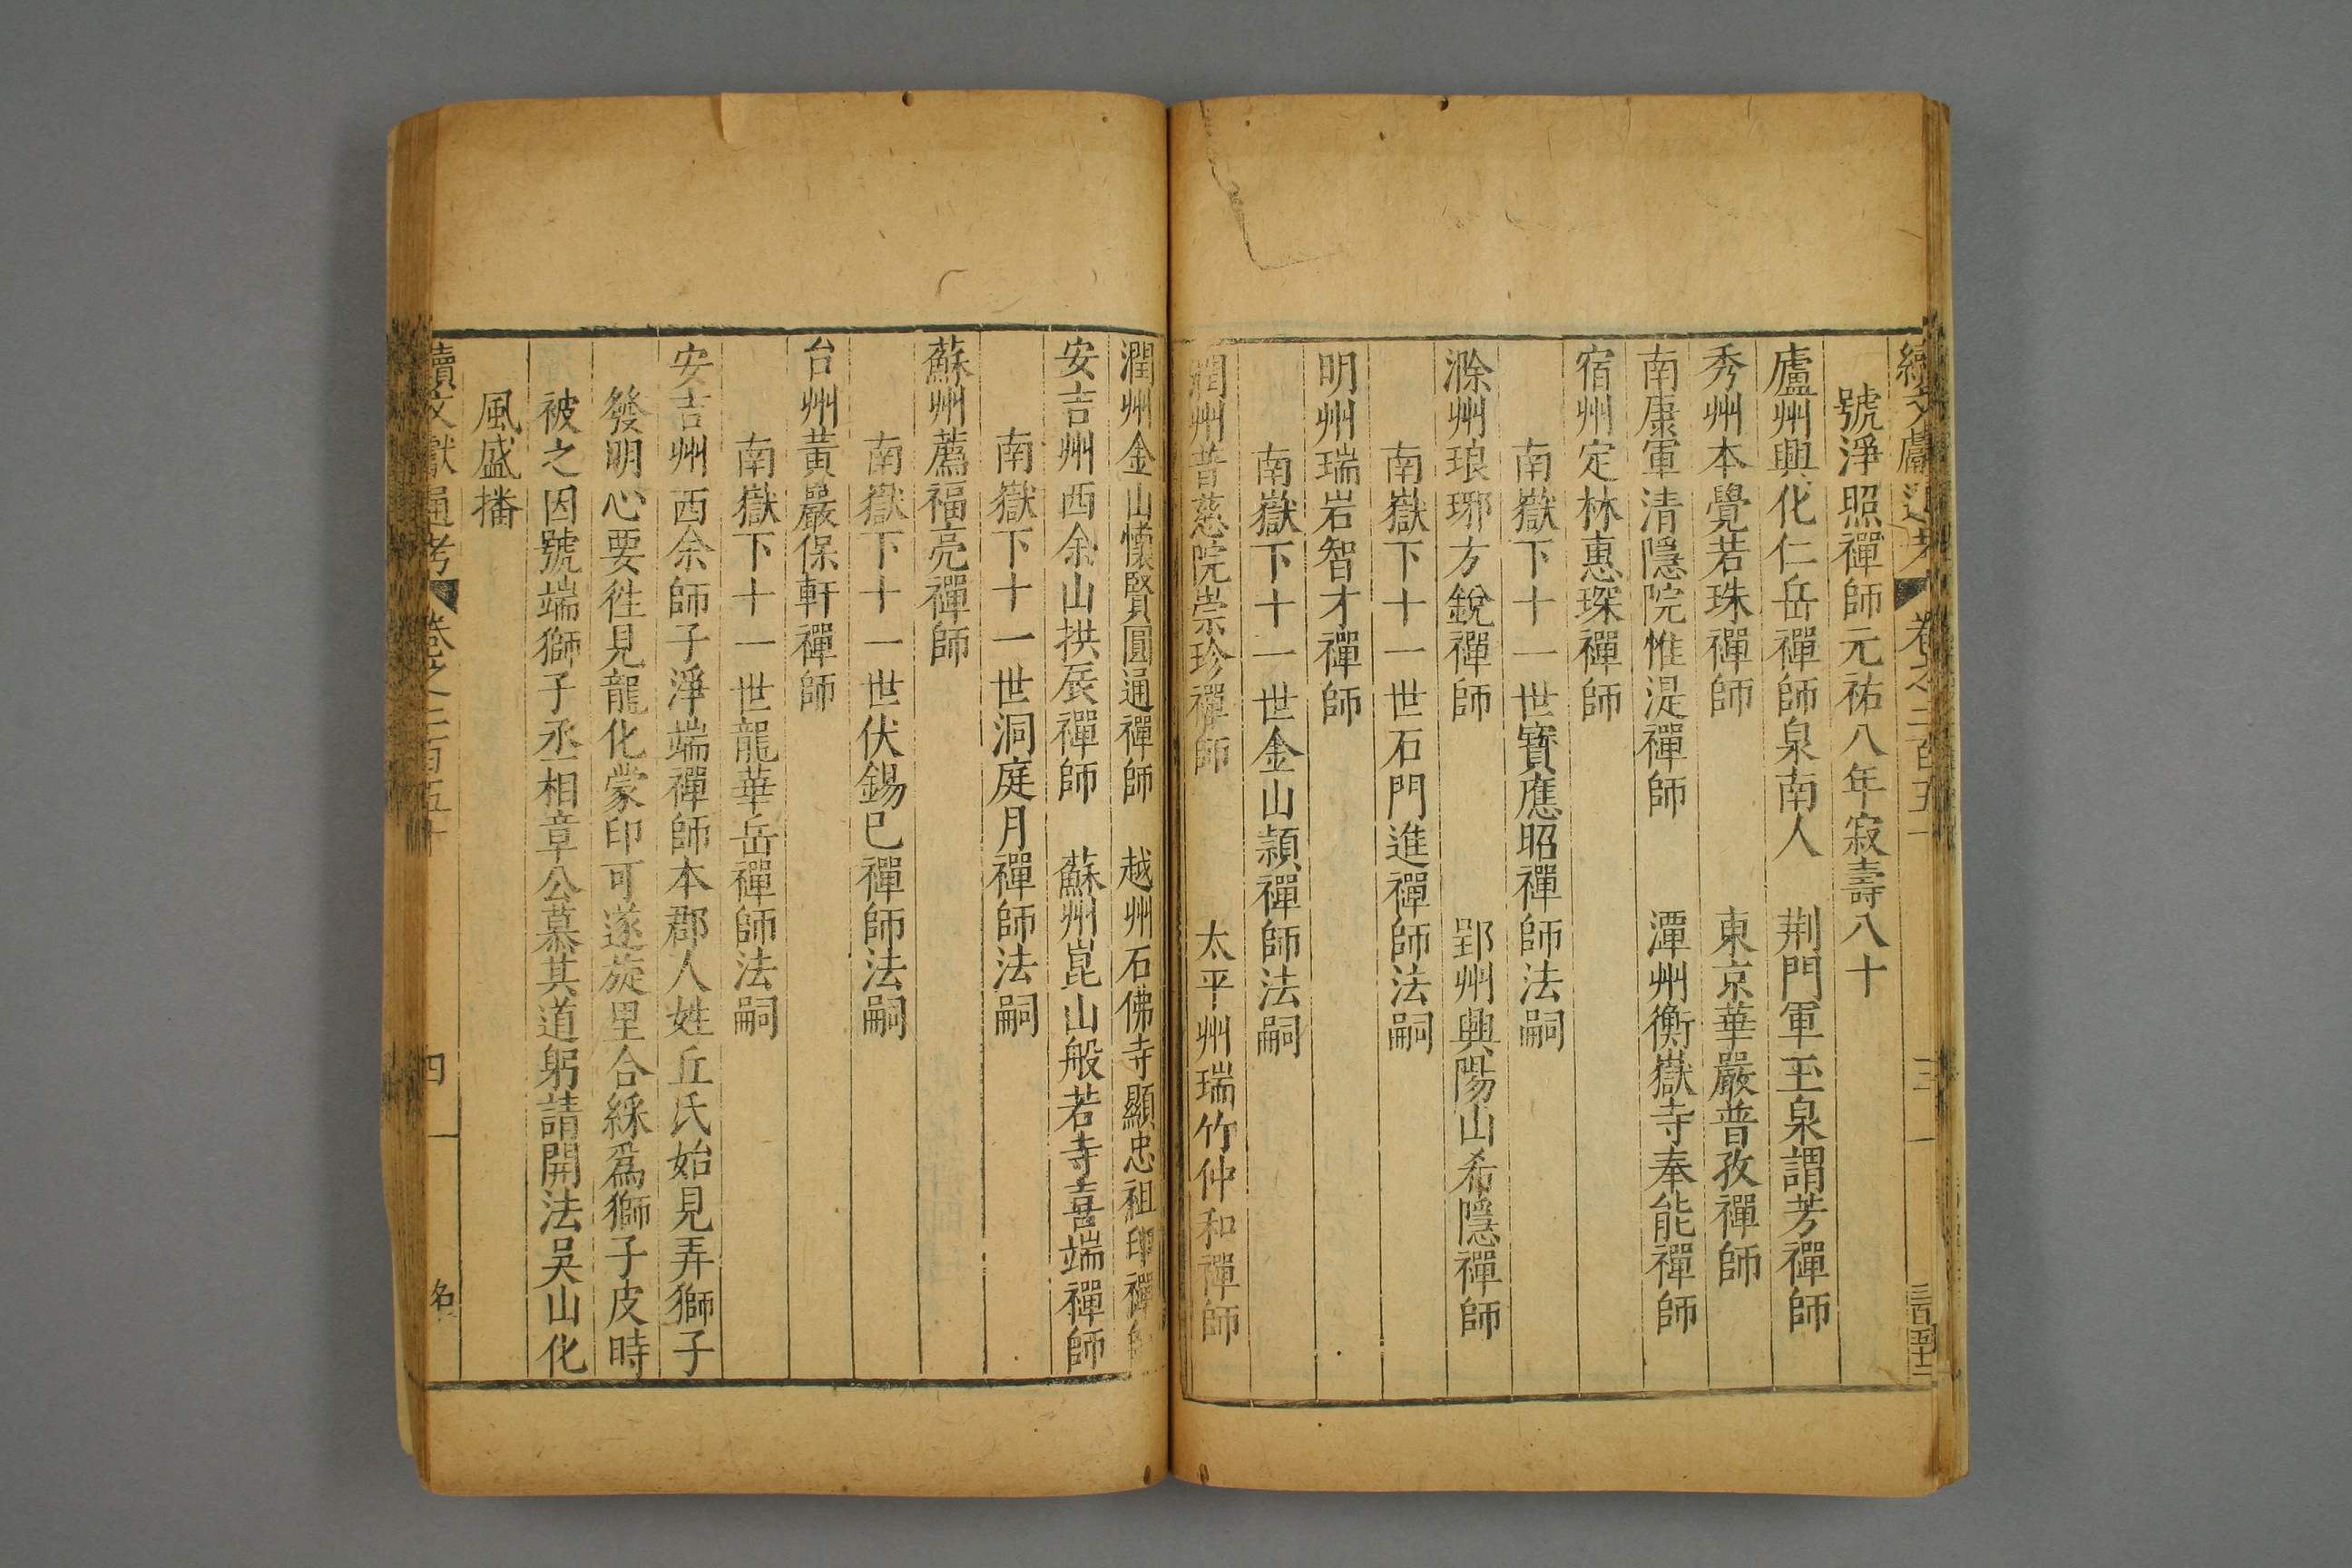 續文獻通考 卷之二百五十 三 三百五十二
號淨照禪師元祐八年寂壽八十
廬州興化仁岳禪師泉南人 荆門軍玉泉謂芳禪師
秀州本覺若珠禪師 東京華嚴普孜禪師
南康軍清隱院惟湜禪師 潭州衡嶽寺奉能禪師
宿州定林惠琛禪師
南嶽下十一世寶應昭禪師法嗣
滁州琅琊方銳禪師 郢州興陽山希隱禪師
南嶽下十一世石門進禪師法嗣
明州瑞岩智才禪師
南嶽下十一世金山頴禪師法嗣
潤州普慈院崇珍禪師 太平州瑞竹仲和禪師
潤州金山懷賢圓通禪師 越州石佛寺顯忠祖印禪師
安吉州西余山拱辰禪師 蘇州崑山般若寺善端禪師
南嶽下十一世洞庭月禪師法嗣
蘇州薦福亮禪師
南嶽下十一世伏錫已禪師法嗣
台州黃巖保軒禪師
南嶽下十一世龍華岳禪師法嗣
安吉州西余師子淨端禪師本郡人姓丘氏始見弄獅子
發明心要徃見龍化蒙印可遂旋里合綵爲獅子皮時
被之因號端獅子丞相章公慕其道躬請開法吳山化
風盛播
續文獻通考 卷之二百五十 四 名